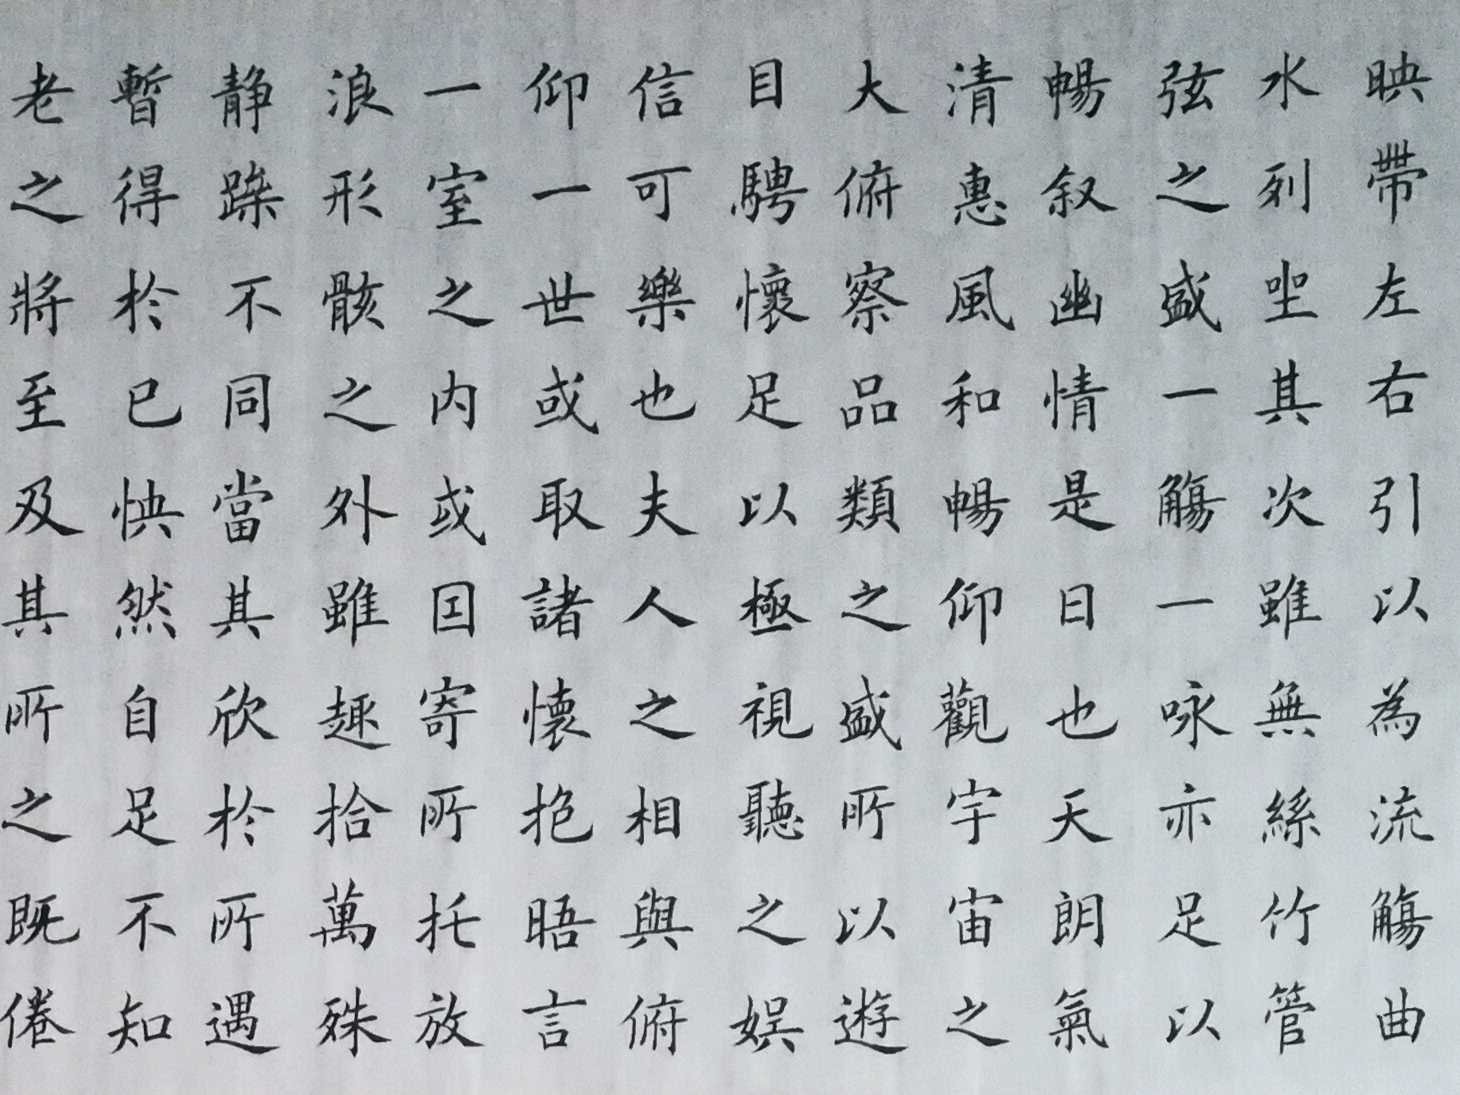 映帶左右引以為流觴曲
水列坐其次雖無絲竹管
弦之盛一觴一咏亦足以
暢叙幽情是日也天朗氣
清惠風和暢仰觀宇宙之
大俯察品類之盛所以遊
目騁懷足以極視聽之娛
信可樂也夫人之相與俯
仰一世或取諸懷抱晤言
一室之内或因寄所托放
浪形骸之外雖趣捨萬殊
静躁不同當其欣於所遇
暫得於已怏然自足不知
老之將至及其所之既倦